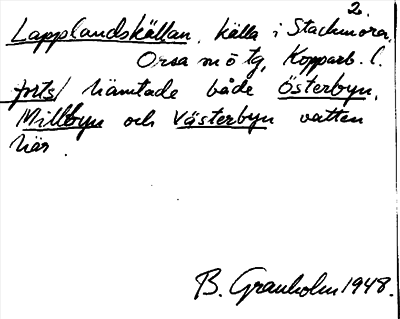 2.
Lapplandskällan, källa i Stackmora,
Orsa sn ö tg, Kopparb. l.
forts/ hämtade både Österbyn,
Millbyn och Västerbyn vatten
här.
B. Granholm 1948.